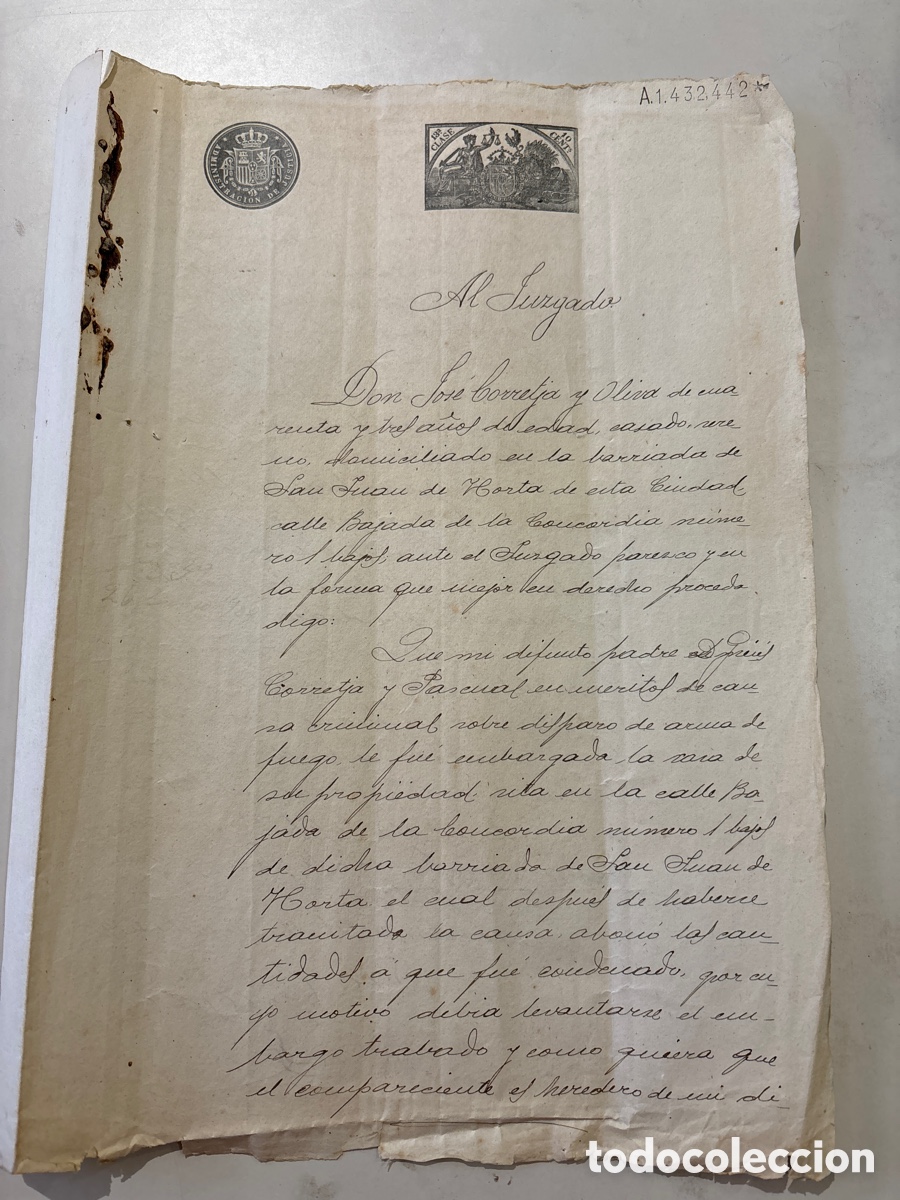 A.1.432,442*
ADMINISTRACIÓN DE JUSTICIA
12ª CLASE
10 CENTS
Al Juzgado.
Don José Corretja y Oliva de cua-
renta y tres años de edad, casado, sere-
no, domiciliado en la barriada de
San Juan de Horta de esta Ciudad,
calle Bajada de la Concordia núme-
ro 1 bajos, ante el Juzgado paresco y en
la forma que mejor en derecho proceda
digo:
Que mi difunto padre D
Corretja y Pascual en meritos de cau-
sa criminal sobre disparo de arma de
fuego, le fué embargada la casa de
su propiedad, sita en la calle Ba-
jada de la Concordia número 1 bajos
de dicha barriada de San Juan de
Horta, el cual después de haberse
tramitado la causa, abonó las can-
tidades á que fué condenado, por cu-
yo motivo debia levantarse el em-
bargo trabado y como quiera que
el compareciente es heredero de mi di-
todocoleccion